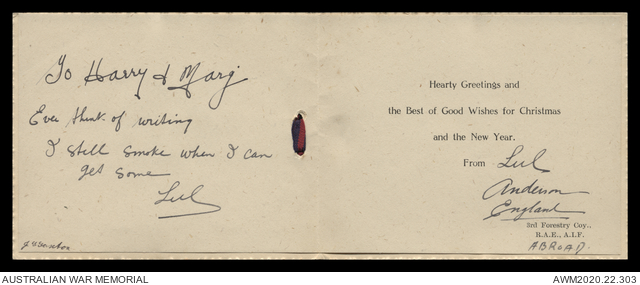 To Harry & Marj
Ever think of writing
I still smoke when I can
get some
Hearty Greetings and
the Best of Good Wishes for Christmas
and the New Year.
From
Anderson
England
3rd Forestry Coy.,
R.A.E., A.I.F.
ABROAD.
AUSTRALIAN WAR MEMORIAL
AWM2020.22.303